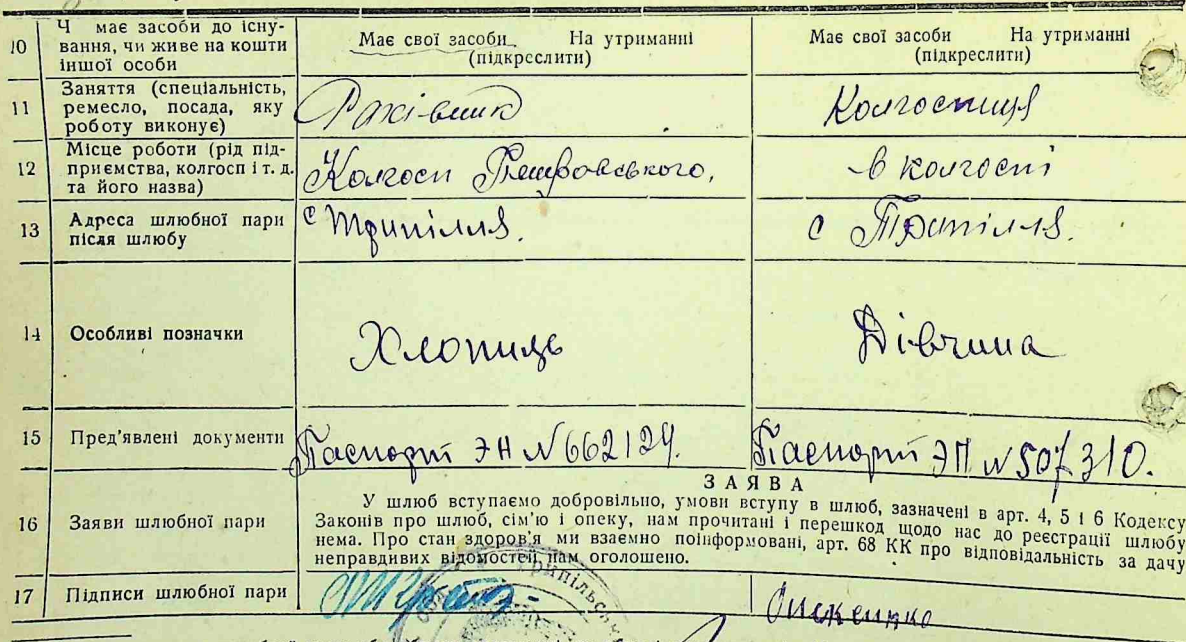 10 Ч має засоби до існування, чи живе на кошти іншої особи
Має свої засоби На утриманні
(підкреслити)
Має свої засоби На утриманні
(підкреслити)
11 Заняття (спеціальність, ремесло, посада, яку роботу виконує)
Рахівник
Колгоспниця
12 Місце роботи (рід підприємства, колгосп і т. д. та його назва)
Колгосп
в колгоспі
13 Адреса шлюбної пари після шлюбу
с Трипілля.
с Трипілля.
14 Особливі позначки
Хлопиць
Дівчина
15 Пред'явлені документи
Паспорт ЭН №662124.
Паспорт ЭП №507310.
16 Заяви шлюбної пари
ЗАЯВА
У шлюб вступаємо добровільно, умови вступу в шлюб, зазначені в арт. 4, 5 і 6 Кодексу
Законів про шлюб, сім'ю і опеку, нам прочитані і перешкод щодо нас до реєстрації шлюбу
нема. Про стан здоров'я ми взаємно поінформовані, арт. 68 КК про відповідальність за дачу
неправдивих відомостей нам оголошено.
17 Підписи шлюбної пари